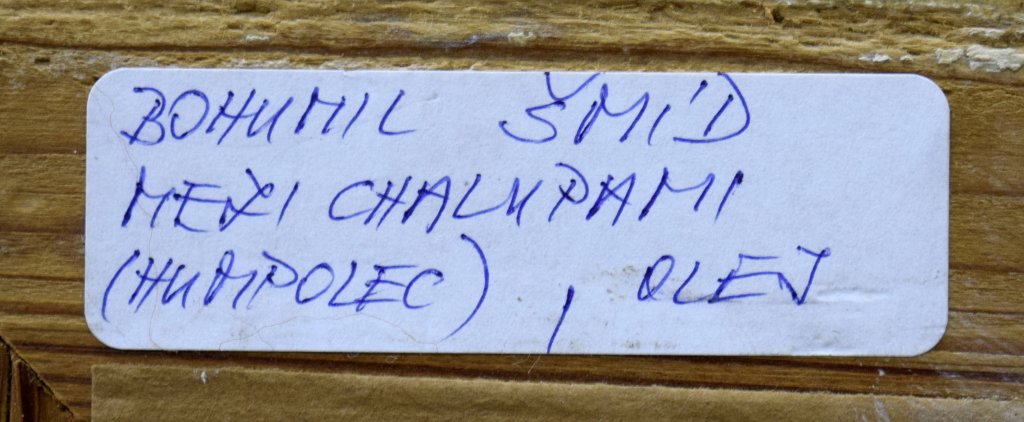 BOHUMIL ŠMÍD
MEZI CHALUPAMI
(HUMPOLEC), OLEJ